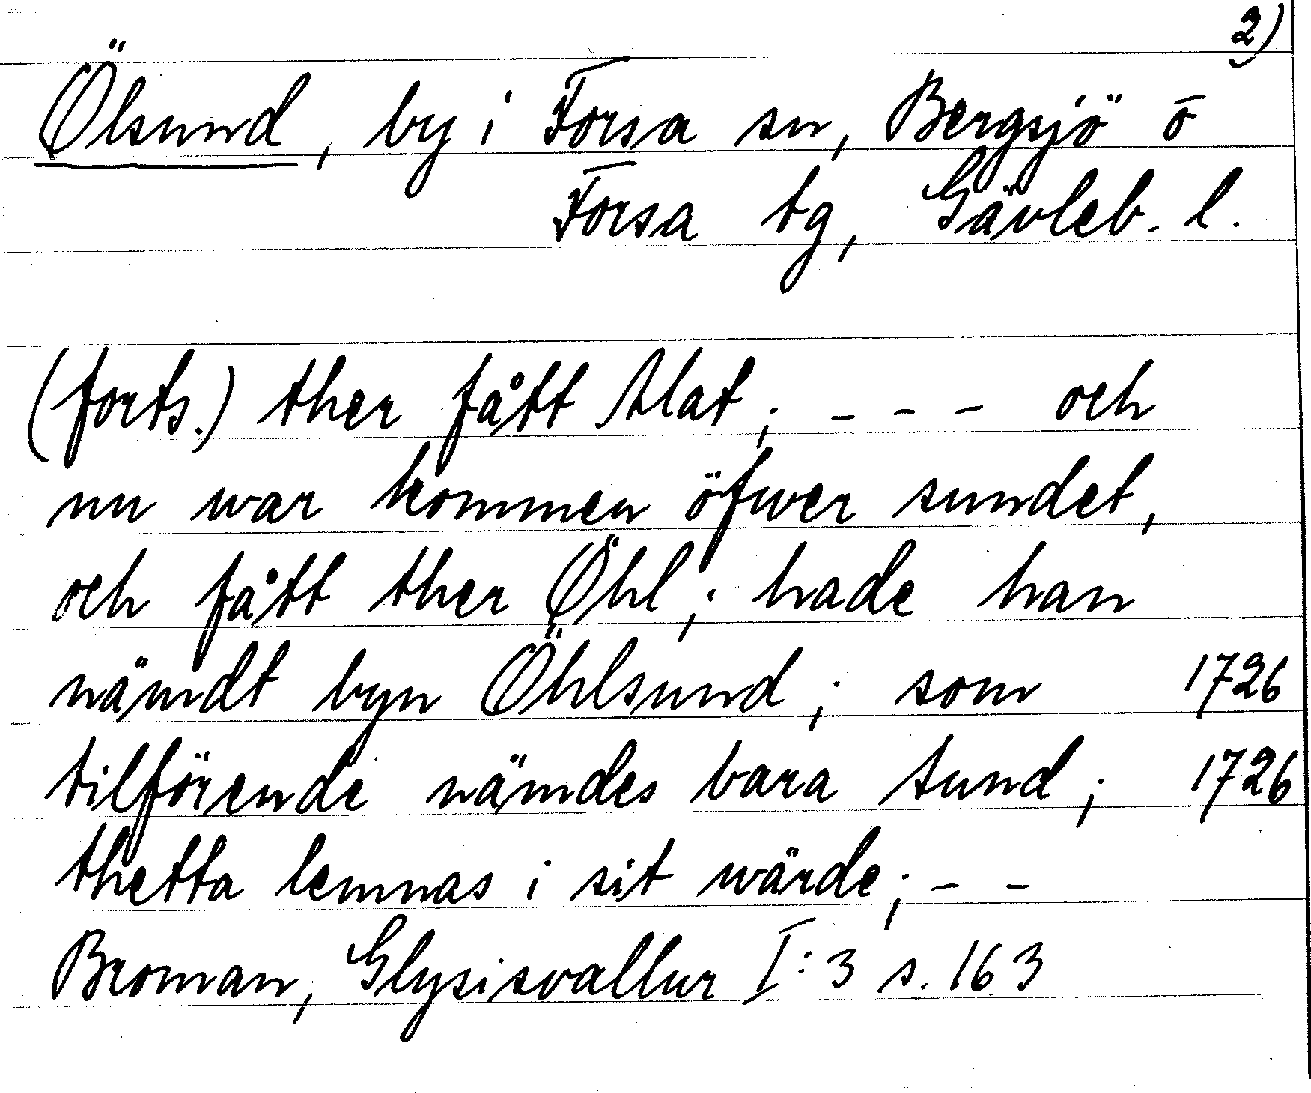 2)
Ölsund, by i Forsa sn, Bergsjö o
Forsa tg, Gävleb. l.
(forts.) ther fått Mat; - - - och
nu war kommen öfwer sundet,
och fått ther Öhl; hade han
nämdt byn Öhlsund; som 1726
tilförende nämdes bara sund; 1726
thetta lemnas i sit wärde; - -
Broman, Glysisvallur I:3 s. 163